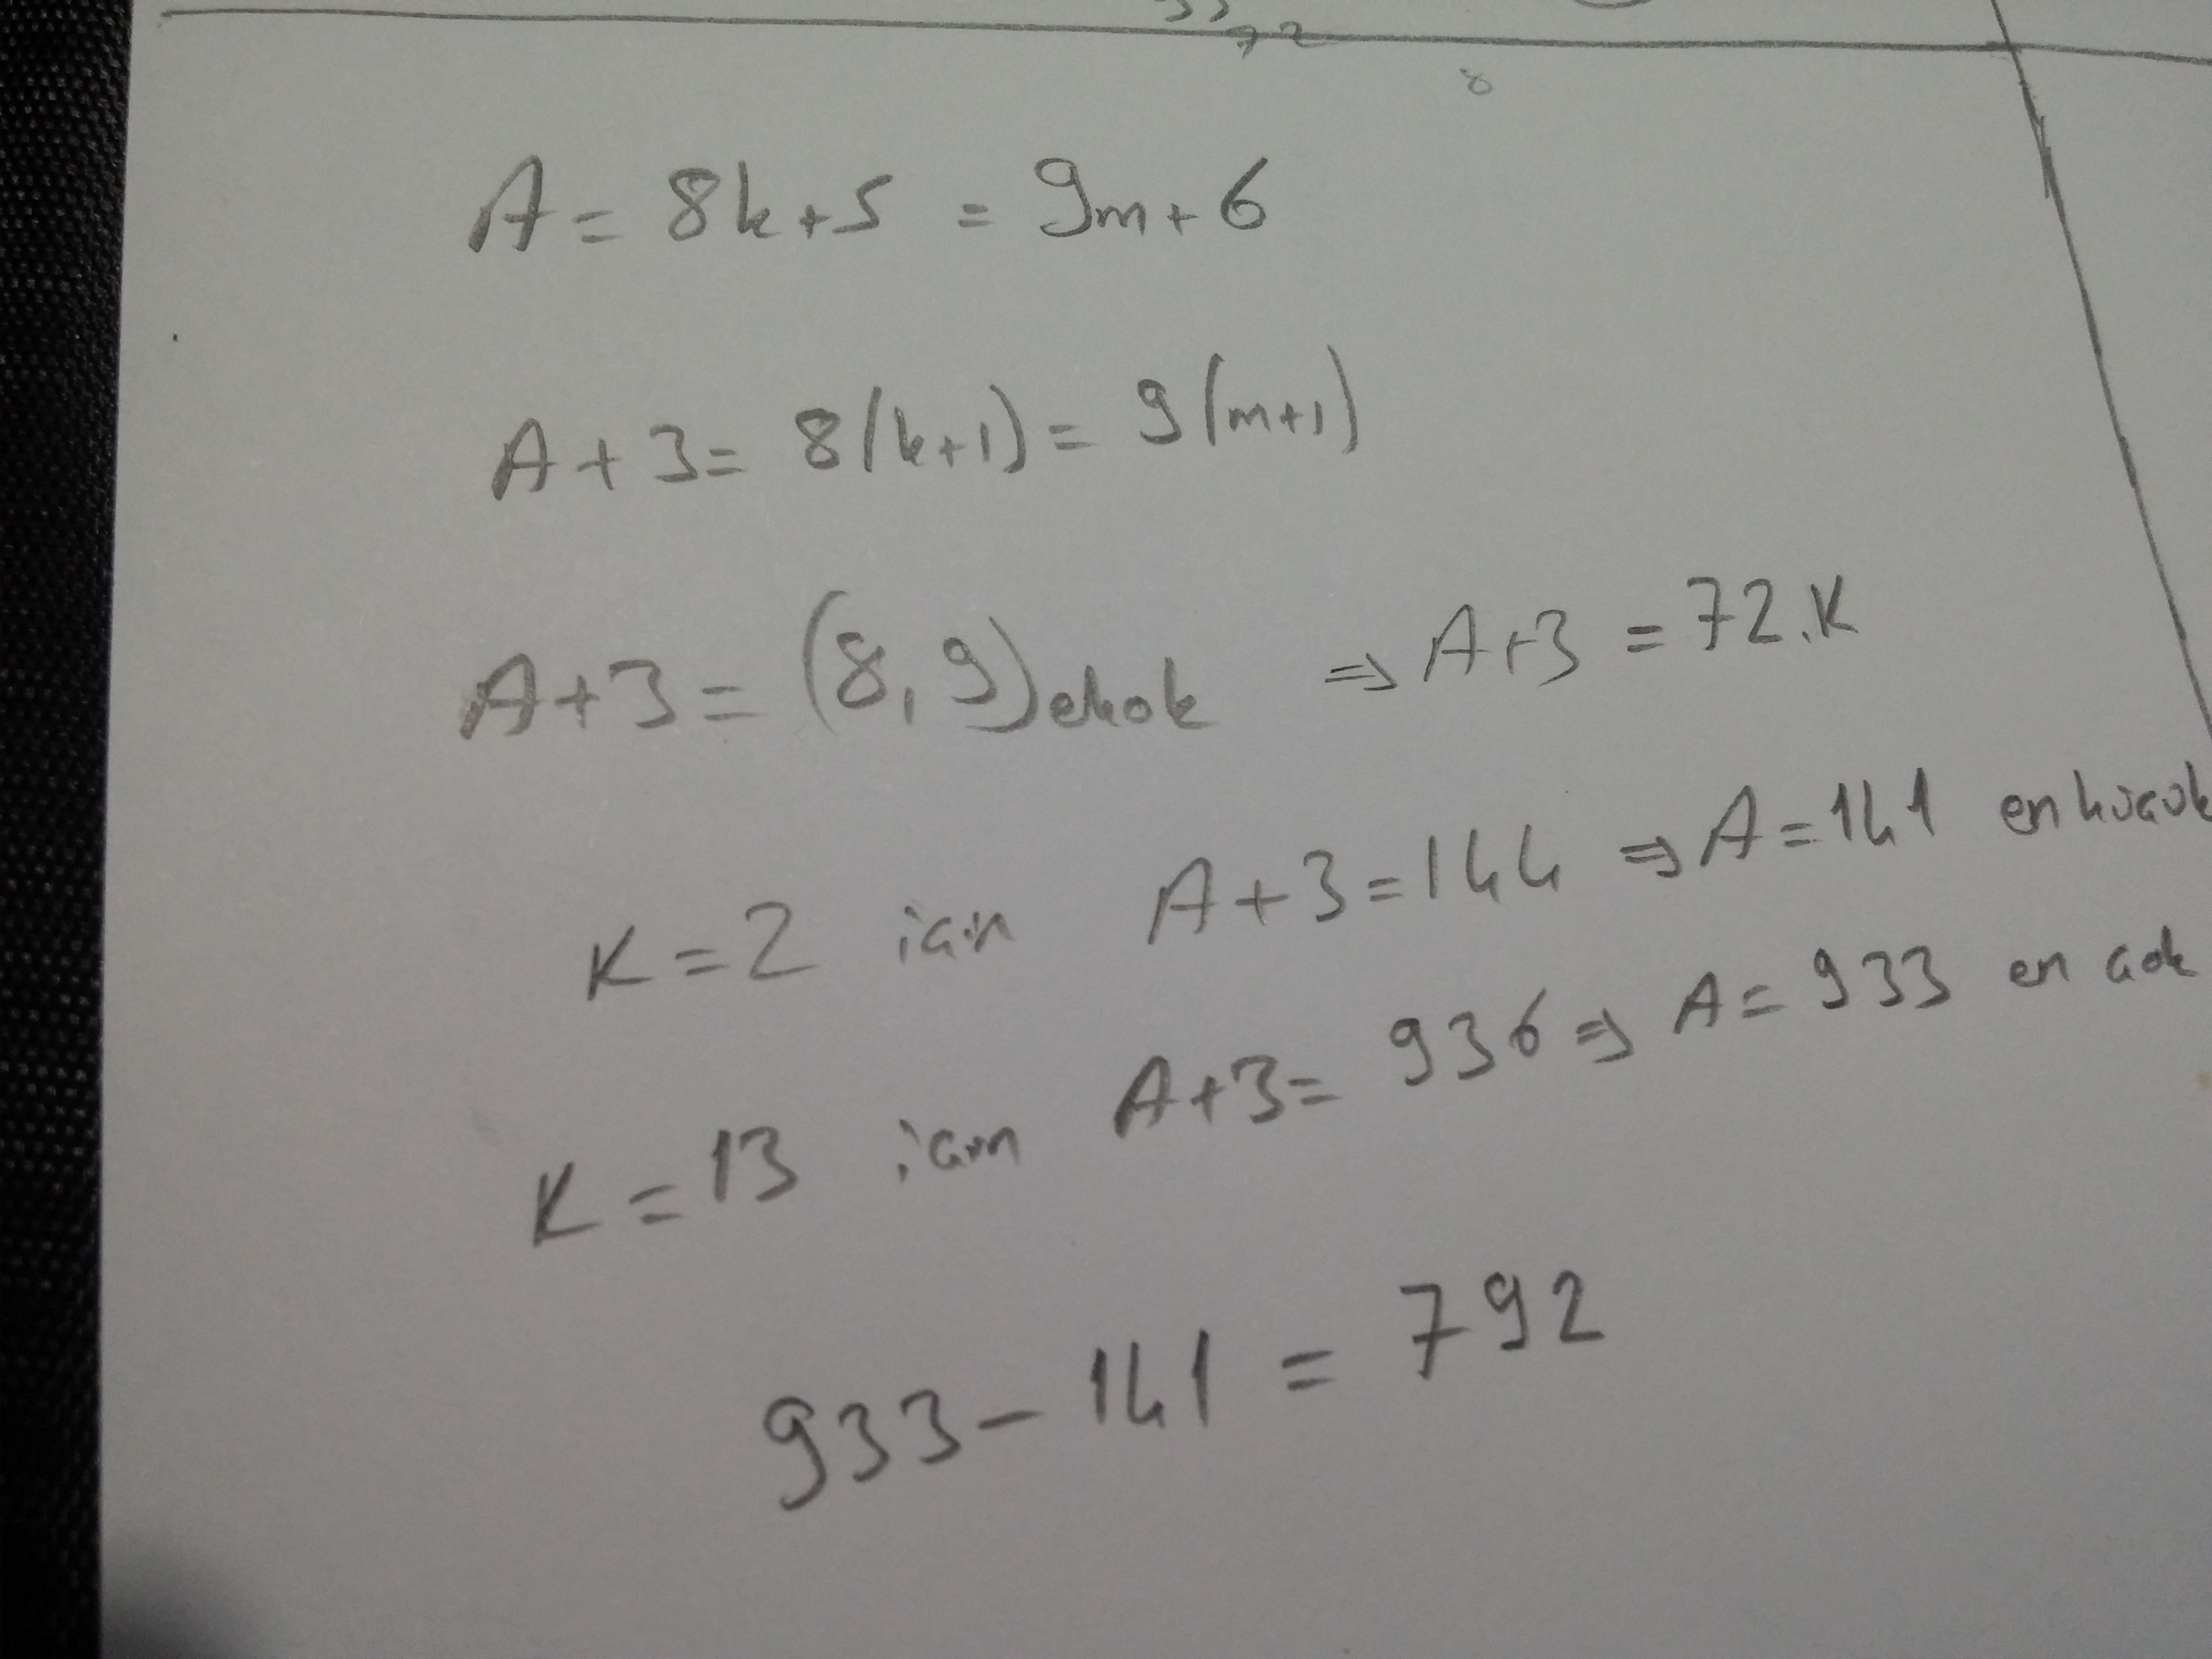 72
8
A = 8k+5 = 9m+6
A+3 = 8(k+1) = 9(m+1)
A+3 = (8,9)ekok ⇒ A+3 = 72.K
K=2 için A+3=144 ⇒ A=141 en küçük
K=13 için A+3= 936 ⇒ A= 933 en çok
933-141 = 792